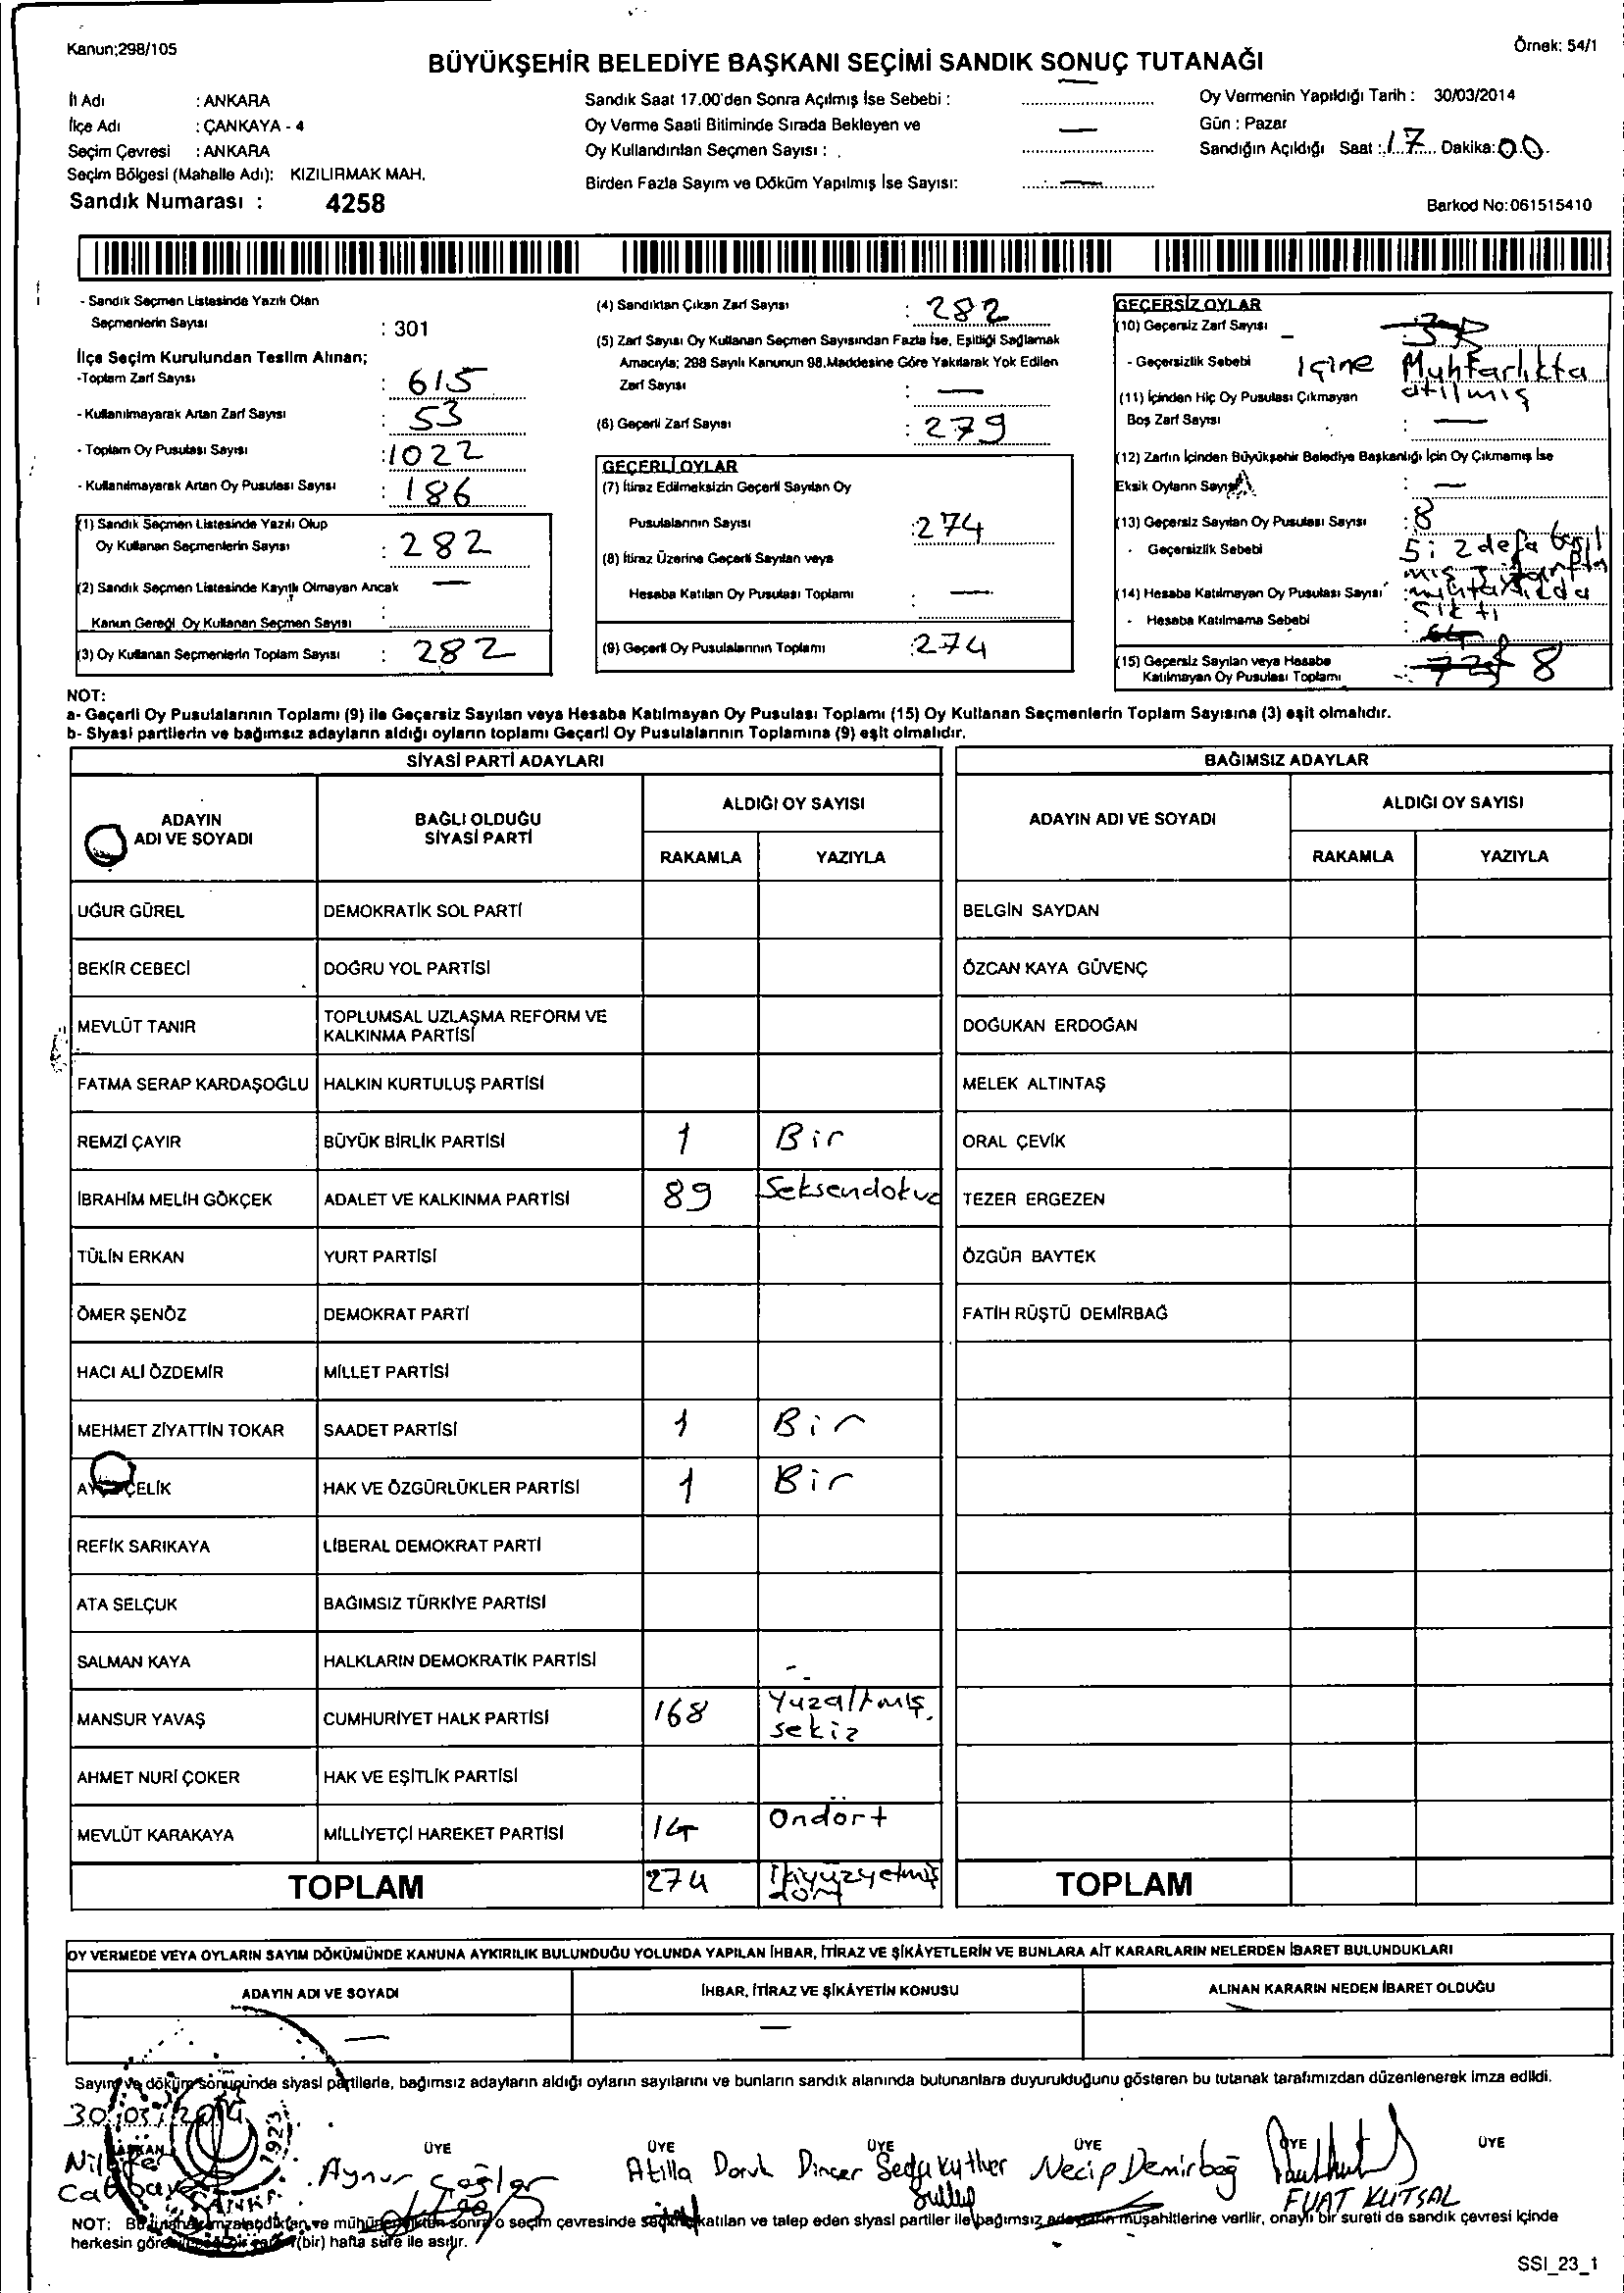 Kanun;298/105
Örnek: 54/1
BÜYÜKŞEHİR BELEDİYE BAŞKANI SEÇİMİ SANDIK SONUÇ TUTANAĞI
İl Adı : ANKARA
İlçe Adı : ÇANKAYA - 4
Seçim Çevresi : ANKARA
Seçim Bölgesi (Mahalle Adı): KIZILIRMAK MAH.
Sandık Numarası : 4258
Sandık Saat 17.00'den Sonra Açılmış İse Sebebi : —
Oy Verme Saati Bitiminde Sırada Bekleyen ve
Oy Kullandırılan Seçmen Sayısı : —
Birden Fazla Sayım ve Döküm Yapılmış İse Sayısı: —
Oy Vermenin Yapıldığı Tarih : 30/03/2014
Gün : Pazar
Sandığın Açıldığı Saat : 17 Dakika: 00
Barkod No:061515410
- Sandık Seçmen Listesinde Yazılı Olan
Seçmenlerin Sayısı : 301
İlçe Seçim Kurulundan Teslim Alınan;
-Toplam Zarf Sayısı : 615
- Kullanılmayarak Artan Zarf Sayısı : 53
- Toplam Oy Pusulası Sayısı : 1022
- Kullanılmayarak Artan Oy Pusulası Sayısı : 186
(1) Sandık Seçmen Listesinde Yazılı Olup
Oy Kullanan Seçmenlerin Sayısı : 282
(2) Sandık Seçmen Listesinde Kayıtlı Olmayan Ancak
Kanun Gereği Oy Kullanan Seçmen Sayısı : —
(3) Oy Kullanan Seçmenlerin Toplam Sayısı : 282
(4) Sandıktan Çıkan Zarf Sayısı : 282
(5) Zarf Sayısı Oy Kullanan Seçmen Sayısından Fazla İse, Eşitliği Sağlamak
Amacıyla; 298 Sayılı Kanunun 98.Maddesine Göre Yakılarak Yok Edilen
Zarf Sayısı : —
(6) Geçerli Zarf Sayısı : 279
GEÇERLİ OYLAR
(7) İtiraz Edilmeksizin Geçerli Sayılan Oy
Pusulalarının Sayısı : 274
(8) İtiraz Üzerine Geçerli Sayılan veya
Hesaba Katılan Oy Pusulası Toplamı : —
(9) Geçerli Oy Pusulalarının Toplamı : 274
GEÇERSİZ OYLAR
(10) Geçersiz Zarf Sayısı
- Geçersizlik Sebebi İçine Muhtarlıkta
atılmış
(11) İçinden Hiç Oy Pusulası Çıkmayan
Boş Zarf Sayısı : —
(12) Zarfın İçinden Büyükşehir Belediye Başkanlığı İçin Oy Çıkmamış İse
Eksik Oyların Sayısı : —
(13) Geçersiz Sayılan Oy Pusulası Sayısı : 8
- Geçersizlik Sebebi 5i 2 defa
(14) Hesaba Katılmayan Oy Pusulası Sayısı
- Hesaba Katılmama Sebebi : çıktı
(15) Geçersiz Sayılan veya Hesaba
Katılmayan Oy Pusulası Toplamı : 8
NOT:
a- Geçerli Oy Pusulalarının Toplamı (9) ile Geçersiz Sayılan veya Hesaba Katılmayan Oy Pusulası Toplamı (15) Oy Kullanan Seçmenlerin Toplam Sayısına (3) eşit olmalıdır.
b- Siyasi partilerin ve bağımsız adayların aldığı oyların toplamı Geçerli Oy Pusulalarının Toplamına (9) eşit olmalıdır.
SİYASİ PARTİ ADAYLARI
BAĞIMSIZ ADAYLAR
ADAYIN
ADI VE SOYADI
BAĞLI OLDUĞU
SİYASİ PARTİ
ALDIĞI OY SAYISI
RAKAMLA YAZIYLA
ADAYIN ADI VE SOYADI
ALDIĞI OY SAYISI
RAKAMLA YAZIYLA
UĞUR GÜREL DEMOKRATİK SOL PARTİ BELGİN SAYDAN
BEKİR CEBECİ DOĞRU YOL PARTİSİ ÖZCAN KAYA GÜVENÇ
MEVLÜT TANIR TOPLUMSAL UZLAŞMA REFORM VE
KALKINMA PARTİSİ DOĞUKAN ERDOĞAN
FATMA SERAP KARDAŞOĞLU HALKIN KURTULUŞ PARTİSİ MELEK ALTINTAŞ
REMZİ ÇAYIR BÜYÜK BİRLİK PARTİSİ 1 Bir ORAL ÇEVİK
İBRAHİM MELİH GÖKÇEK ADALET VE KALKINMA PARTİSİ 89 Seksendokuz TEZER ERGEZEN
TÜLİN ERKAN YURT PARTİSİ ÖZGÜR BAYTEK
ÖMER ŞENÖZ DEMOKRAT PARTİ FATİH RÜŞTÜ DEMİRBAĞ
HACI ALİ ÖZDEMİR MİLLET PARTİSİ
MEHMET ZİYATTİN TOKAR SAADET PARTİSİ 1 Bir
ÇELİK HAK VE ÖZGÜRLÜKLER PARTİSİ 1 Bir
REFİK SARIKAYA LİBERAL DEMOKRAT PARTİ
ATA SELÇUK BAĞIMSIZ TÜRKİYE PARTİSİ
SALMAN KAYA HALKLARIN DEMOKRATİK PARTİSİ
MANSUR YAVAŞ CUMHURİYET HALK PARTİSİ 168 Yüzaltmış
sekiz
AHMET NURİ ÇOKER HAK VE EŞİTLİK PARTİSİ
MEVLÜT KARAKAYA MİLLİYETÇİ HAREKET PARTİSİ 14 Ondört
TOPLAM 274 İkiyüzyetmiş
dört
TOPLAM
OY VERMEDE VEYA OYLARIN SAYIM DÖKÜMÜNDE KANUNA AYKIRILIK BULUNDUĞU YOLUNDA YAPILAN İHBAR, İTİRAZ VE ŞİKÂYETLERİN VE BUNLARA AİT KARARLARIN NELERDEN İBARET BULUNDUKLARI
ADAYIN ADI VE SOYADI İHBAR, İTİRAZ VE ŞİKÂYETİN KONUSU ALINAN KARARIN NEDEN İBARET OLDUĞU
— —
Sayım ve döküm sonucunda siyasi partilerle, bağımsız adayların aldığı oyların sayılarını ve bunların sandık alanında bulunanlara duyurulduğunu gösteren bu tutanak tarafımızdan düzenlenerek imza edildi.
30/03/2014
1923
BAŞKAN ÜYE ÜYE ÜYE ÜYE ÜYE ÜYE
Nilüfer Aynur Çağlar Atilla Doruk Dinçer Necip Demirbağ
FUAT KUTSAL
NOT: Bu tutanak imzalandıktan ve mühürlendikten sonra o seçim çevresinde seçime katılan ve talep eden siyasi partiler ile bağımsız adayların müşahitlerine verilir, onaylı bir sureti de sandık çevresi içinde
herkesin (bir) hafta süre ile asılır.
SSI_23_1